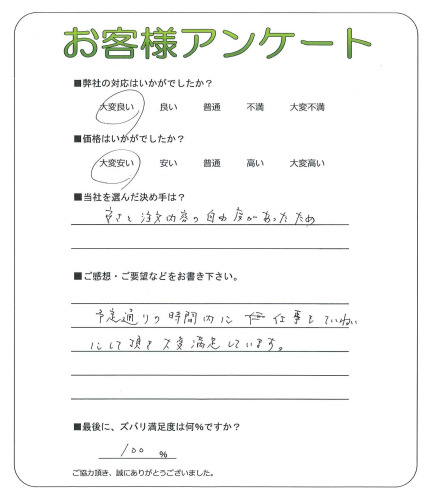 お客様アンケート
■弊社の対応はいかがでしたか?
大変良い 良い 普通 不満 大変不満
■価格はいかがでしたか?
大変安い 安い 普通 高い 大変高い
■当社を選んだ決め手は?
安さと注文内容の自由度があったため
■ご感想・ご要望などをお書き下さい。
予定通りの時間内に 仕事をていねい
にして頂き大変満足しています。
■最後に、ズバリ満足度は何%ですか?
100 %
ご協力頂き、誠にありがとうございました。